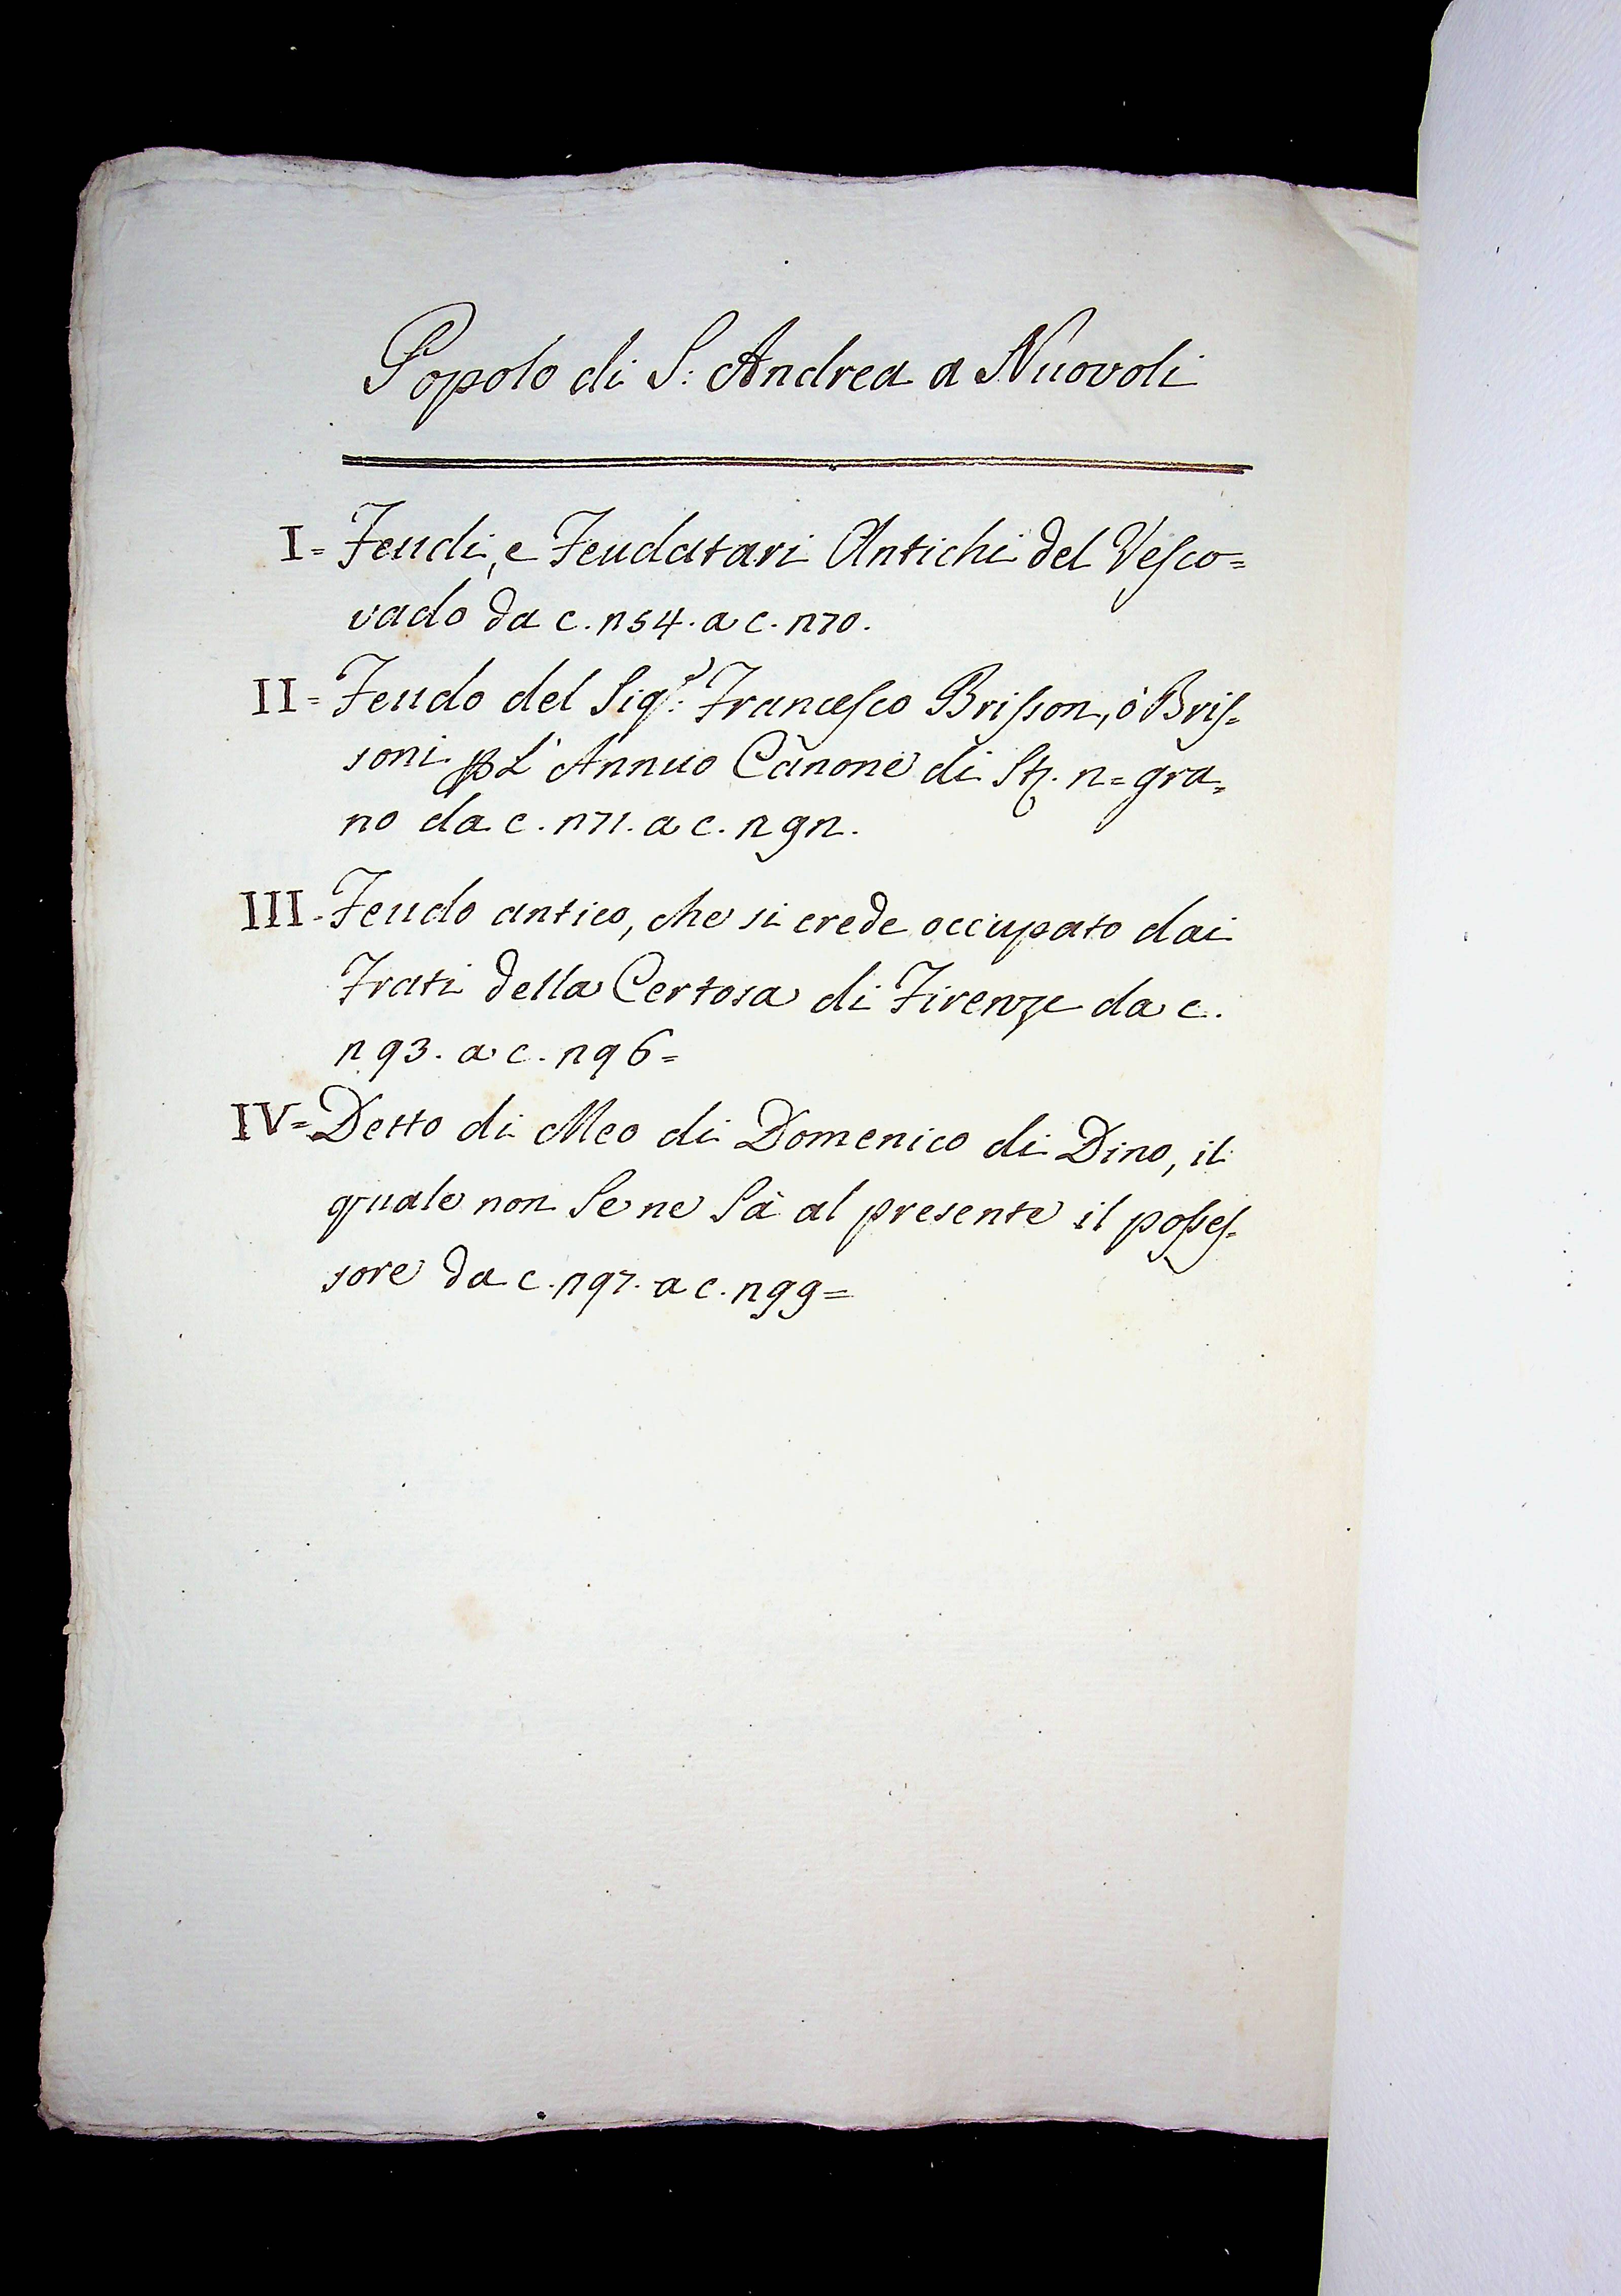 Popolo di S: Andrea a Nuovoli
I= Feudi, e Feudatari Antichi del Vesco=
vado da c. 254. a c. 270.
II= Feudo del Sig.r: Francesco Brisson, ò Bris=
soni ꝑ L' Annuo Cànone di St. 2= gra=
no da c. 271. a c. 292.
III- Feudo antico, che si crede occupato dai
Frati della Certosa di Firenze da c.
293. a c. 296=
IV= Detto di Meo di Domenico di Dino, il
quale non Se ne Sà al presente il posses=
sore da c. 297. a c. 299=